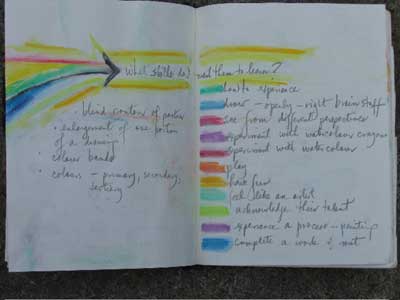 what skills do I want them to learn?
blind contour of poster
• enlargement of one portion
of a drawing
• colour bands
• colours - primary, secondary,
tertiary
how to experience
draw - openly - right brain stuff
see from different perspectives
experiment with watercolour crayons
experiment with watercolour
play
have fun
feel like an artist
acknowledge their talent
experience a process - painting
complete a work of art